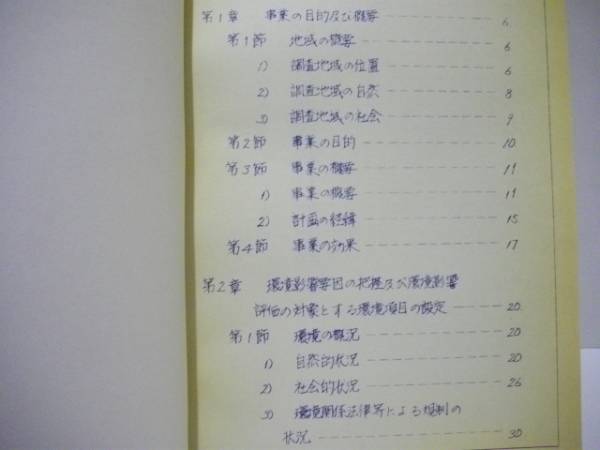 第1章 事業の目的及び概要 6
第1節 地域の概要 6
1) 調査地域の位置 6
2) 調査地域の自然 8
3) 調査地域の社会 9
第2節 事業の目的 10
第3節 事業の概要 11
1) 事業の概要 11
2) 計画の経緯 15
第4節 事業の効果 17
第2章 環境影響要因の把握及び環境影響
評価の対象とする環境項目の設定 20
第1節 環境の概況 20
1) 自然的状況 20
2) 社会的状況 26
3) 環境関係法律等による規制の
状況 30